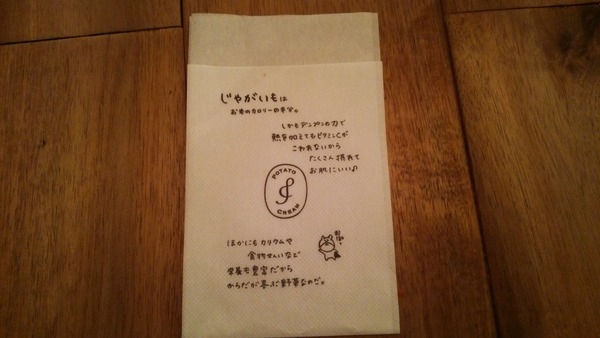 じゃがいもは
お米のカロリーの半分。
しかもデンプンの力で
熱を加えてもビタミンCが
こわれないから
たくさん摂れて
お肌にいい♪
POTATO
CREAM
ほかにもカリウムや
食物せんいなど
栄養も豊富だから
からだが喜ぶ野菜なのだ。